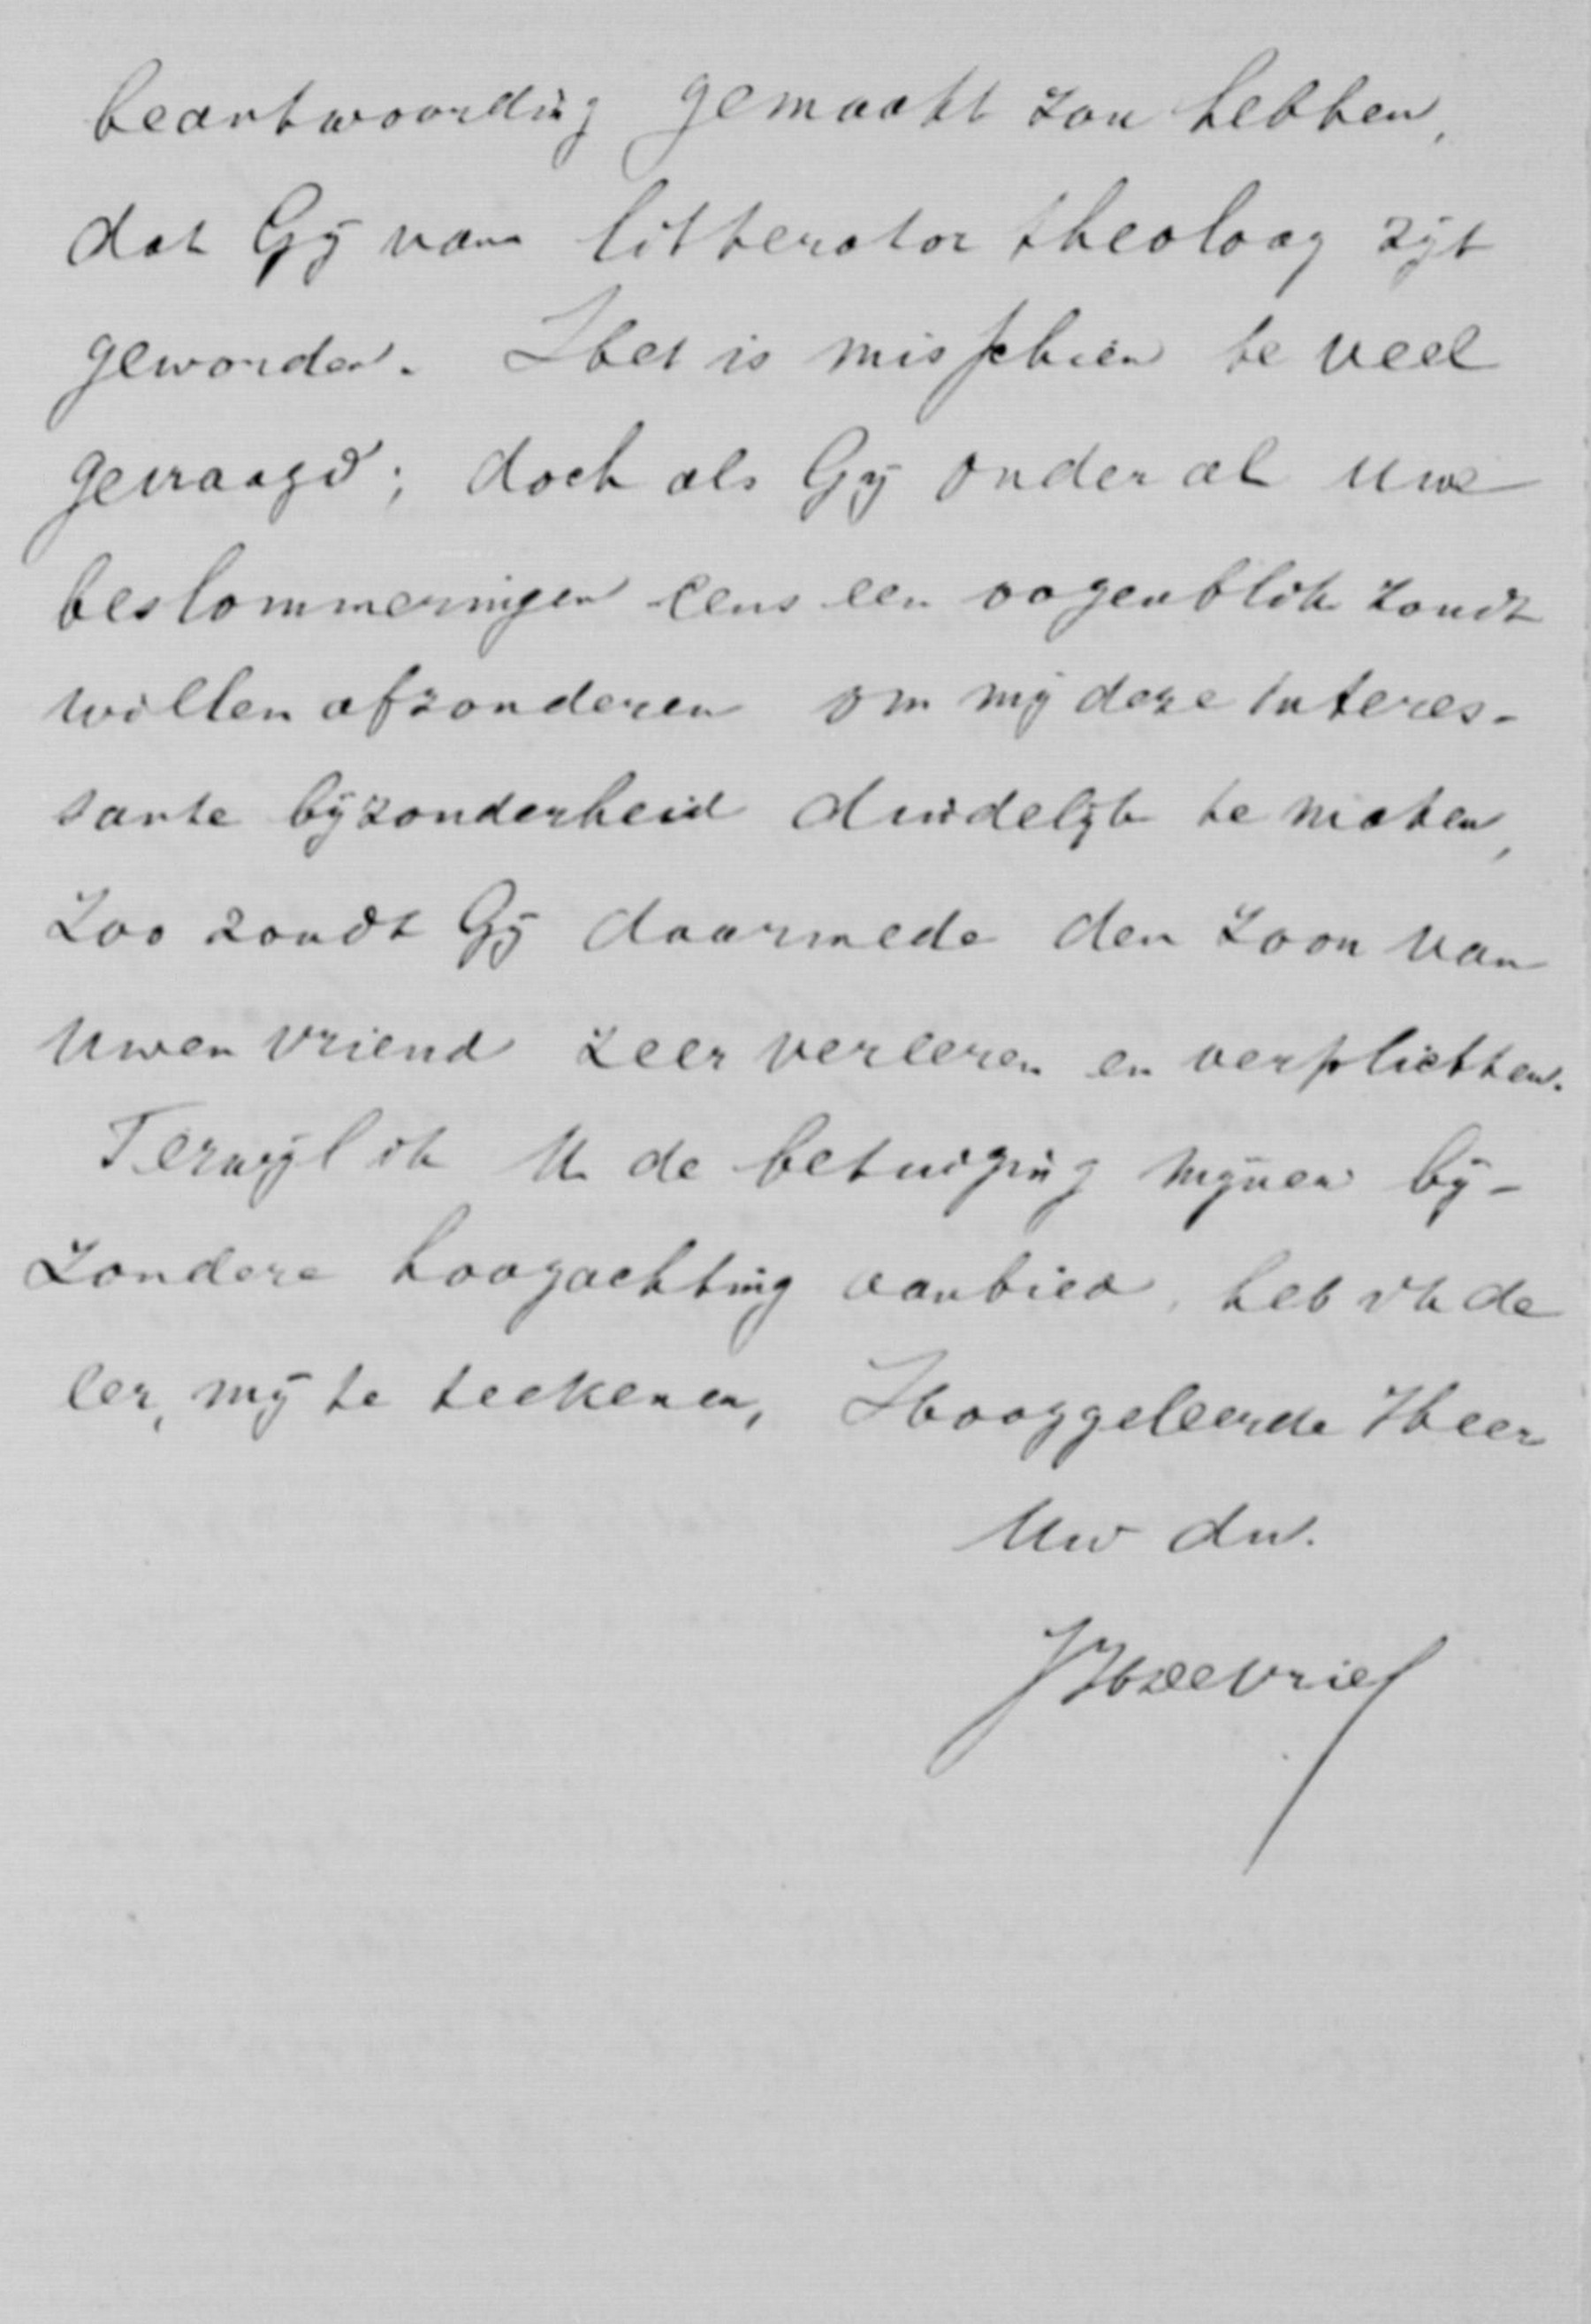 beantwoording gemaakt zou hebben,
dat Gij van litterator theoloog zijt
geworden. Het is misschien te veel
gevraagd; doch als Gij onder al uwe
beslommeringen eens een oogenblik zoudt
willen afzonderen om mij deze interes-
sante bijzonderheid duidelijk te maken,
Zoo zoudt Gij daarmede den zoon van
Uwen vriend zeer vereeren en verplichten.
Terwijl ik U de betuiging mijner bij-
zondere hoogachting aanbied, heb ik de
eer, mij te teekenen, Hooggeleerde Heer
Uw dw.
de Vries